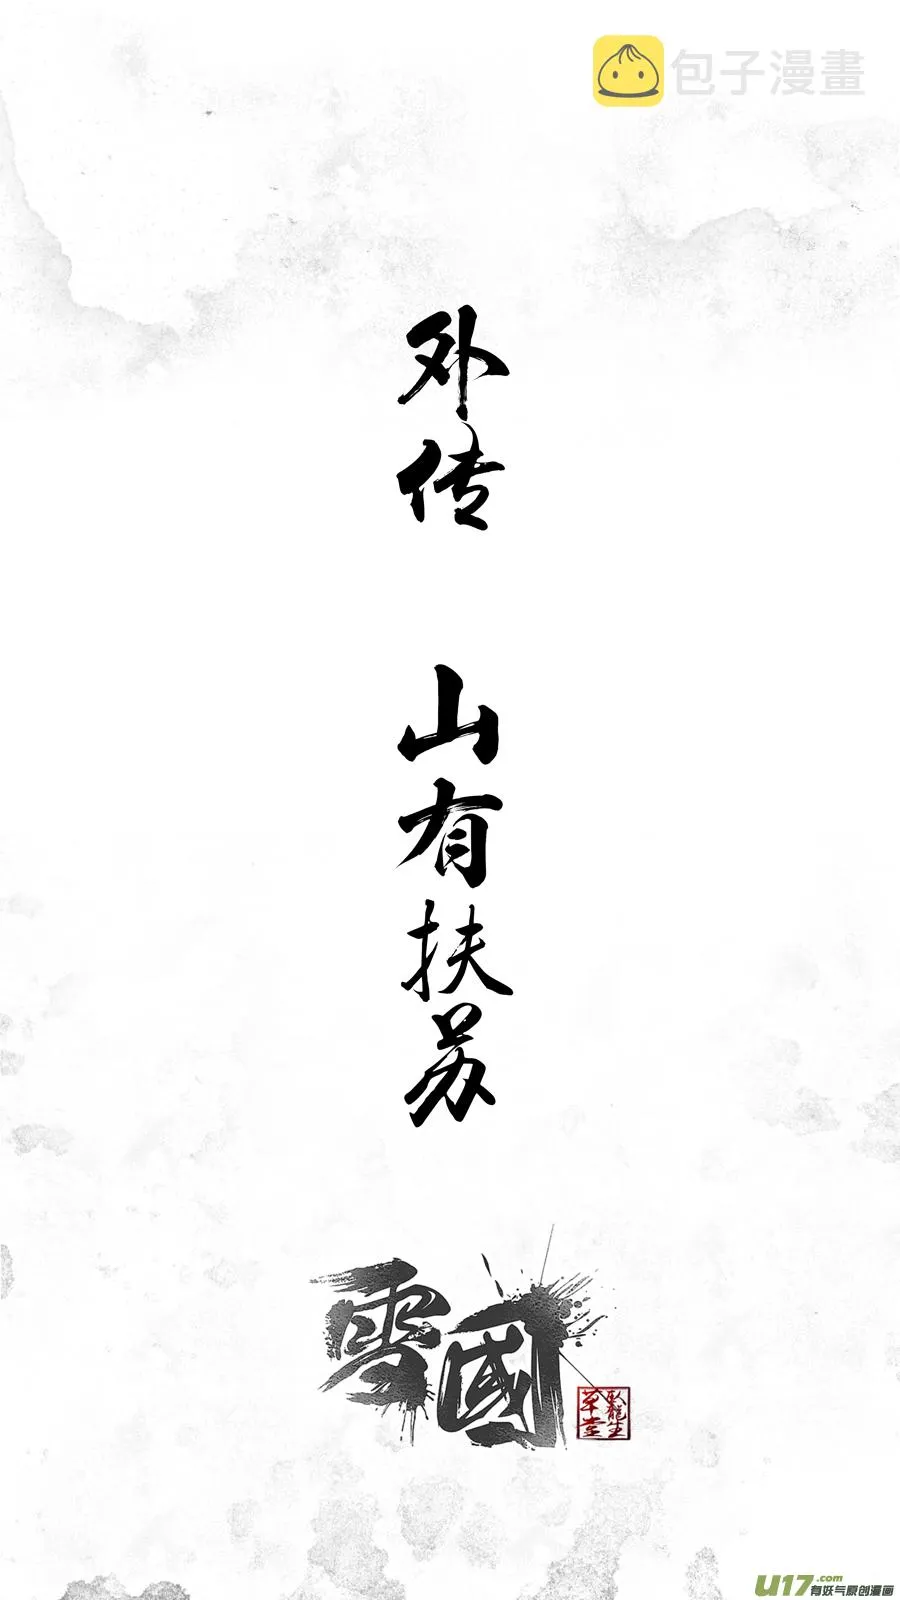 包子漫畫
外传
山有扶苏
雪國
臥龍生
草堂
U17.com
有妖气原创漫画